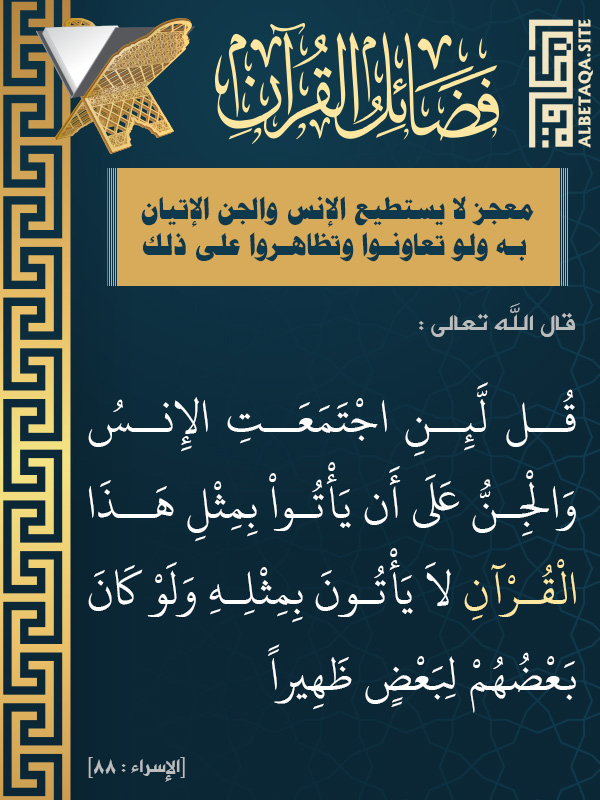 فَضَائِلُ القُرْآنِ
البطاقة
ALBETAQA.SITE
معجز لا يستطيع الإنس والجن الإتيان
به ولو تعاونوا وتظاهروا على ذلك
قال اللَّه تعالى :
قُل لَّئِنِ اجْتَمَعَتِ الإِنسُ
وَالْجِنُّ عَلَى أَن يَأْتُواْ بِمِثْلِ هَذَا
الْقُرْآنِ لاَ يَأْتُونَ بِمِثْلِهِ وَلَوْ كَانَ
بَعْضُهُمْ لِبَعْضٍ ظَهِيراً
[الإسراء : ٨٨]